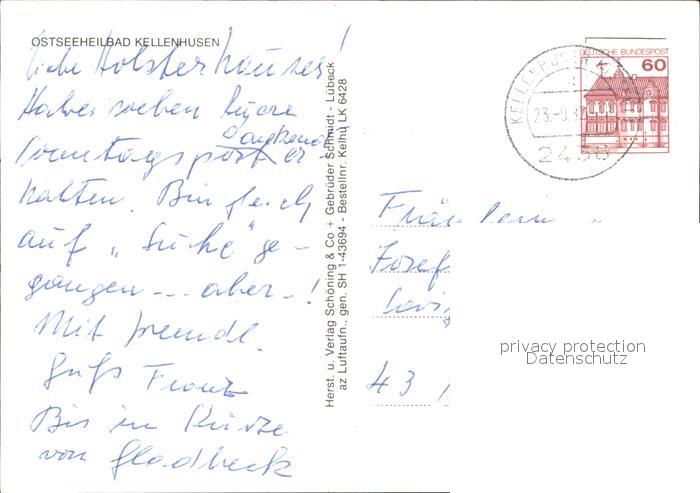 OSTSEEHEILBAD KELLENHUSEN
Liebe Holsterhauser!
Habe soeben
Sonntagspost er-
halten. Bin gleich
auf „Suche" ge-
gangen --- aber -!
Mit freundl.
Gruß Franz
Bis in Kürze
von Gladbeck
Herst. u. Verlag Schöning & Co + Gebrüder Schmidt - Lübeck
az Luftaufn., gen. SH 1-43694 - Bestellnr. Kelhu LK 6428
DEUTSCHE BUNDESPOST
60
KELLENHUSEN
23.-9.8
2436
Josef
43
privacy protection
Datenschutz